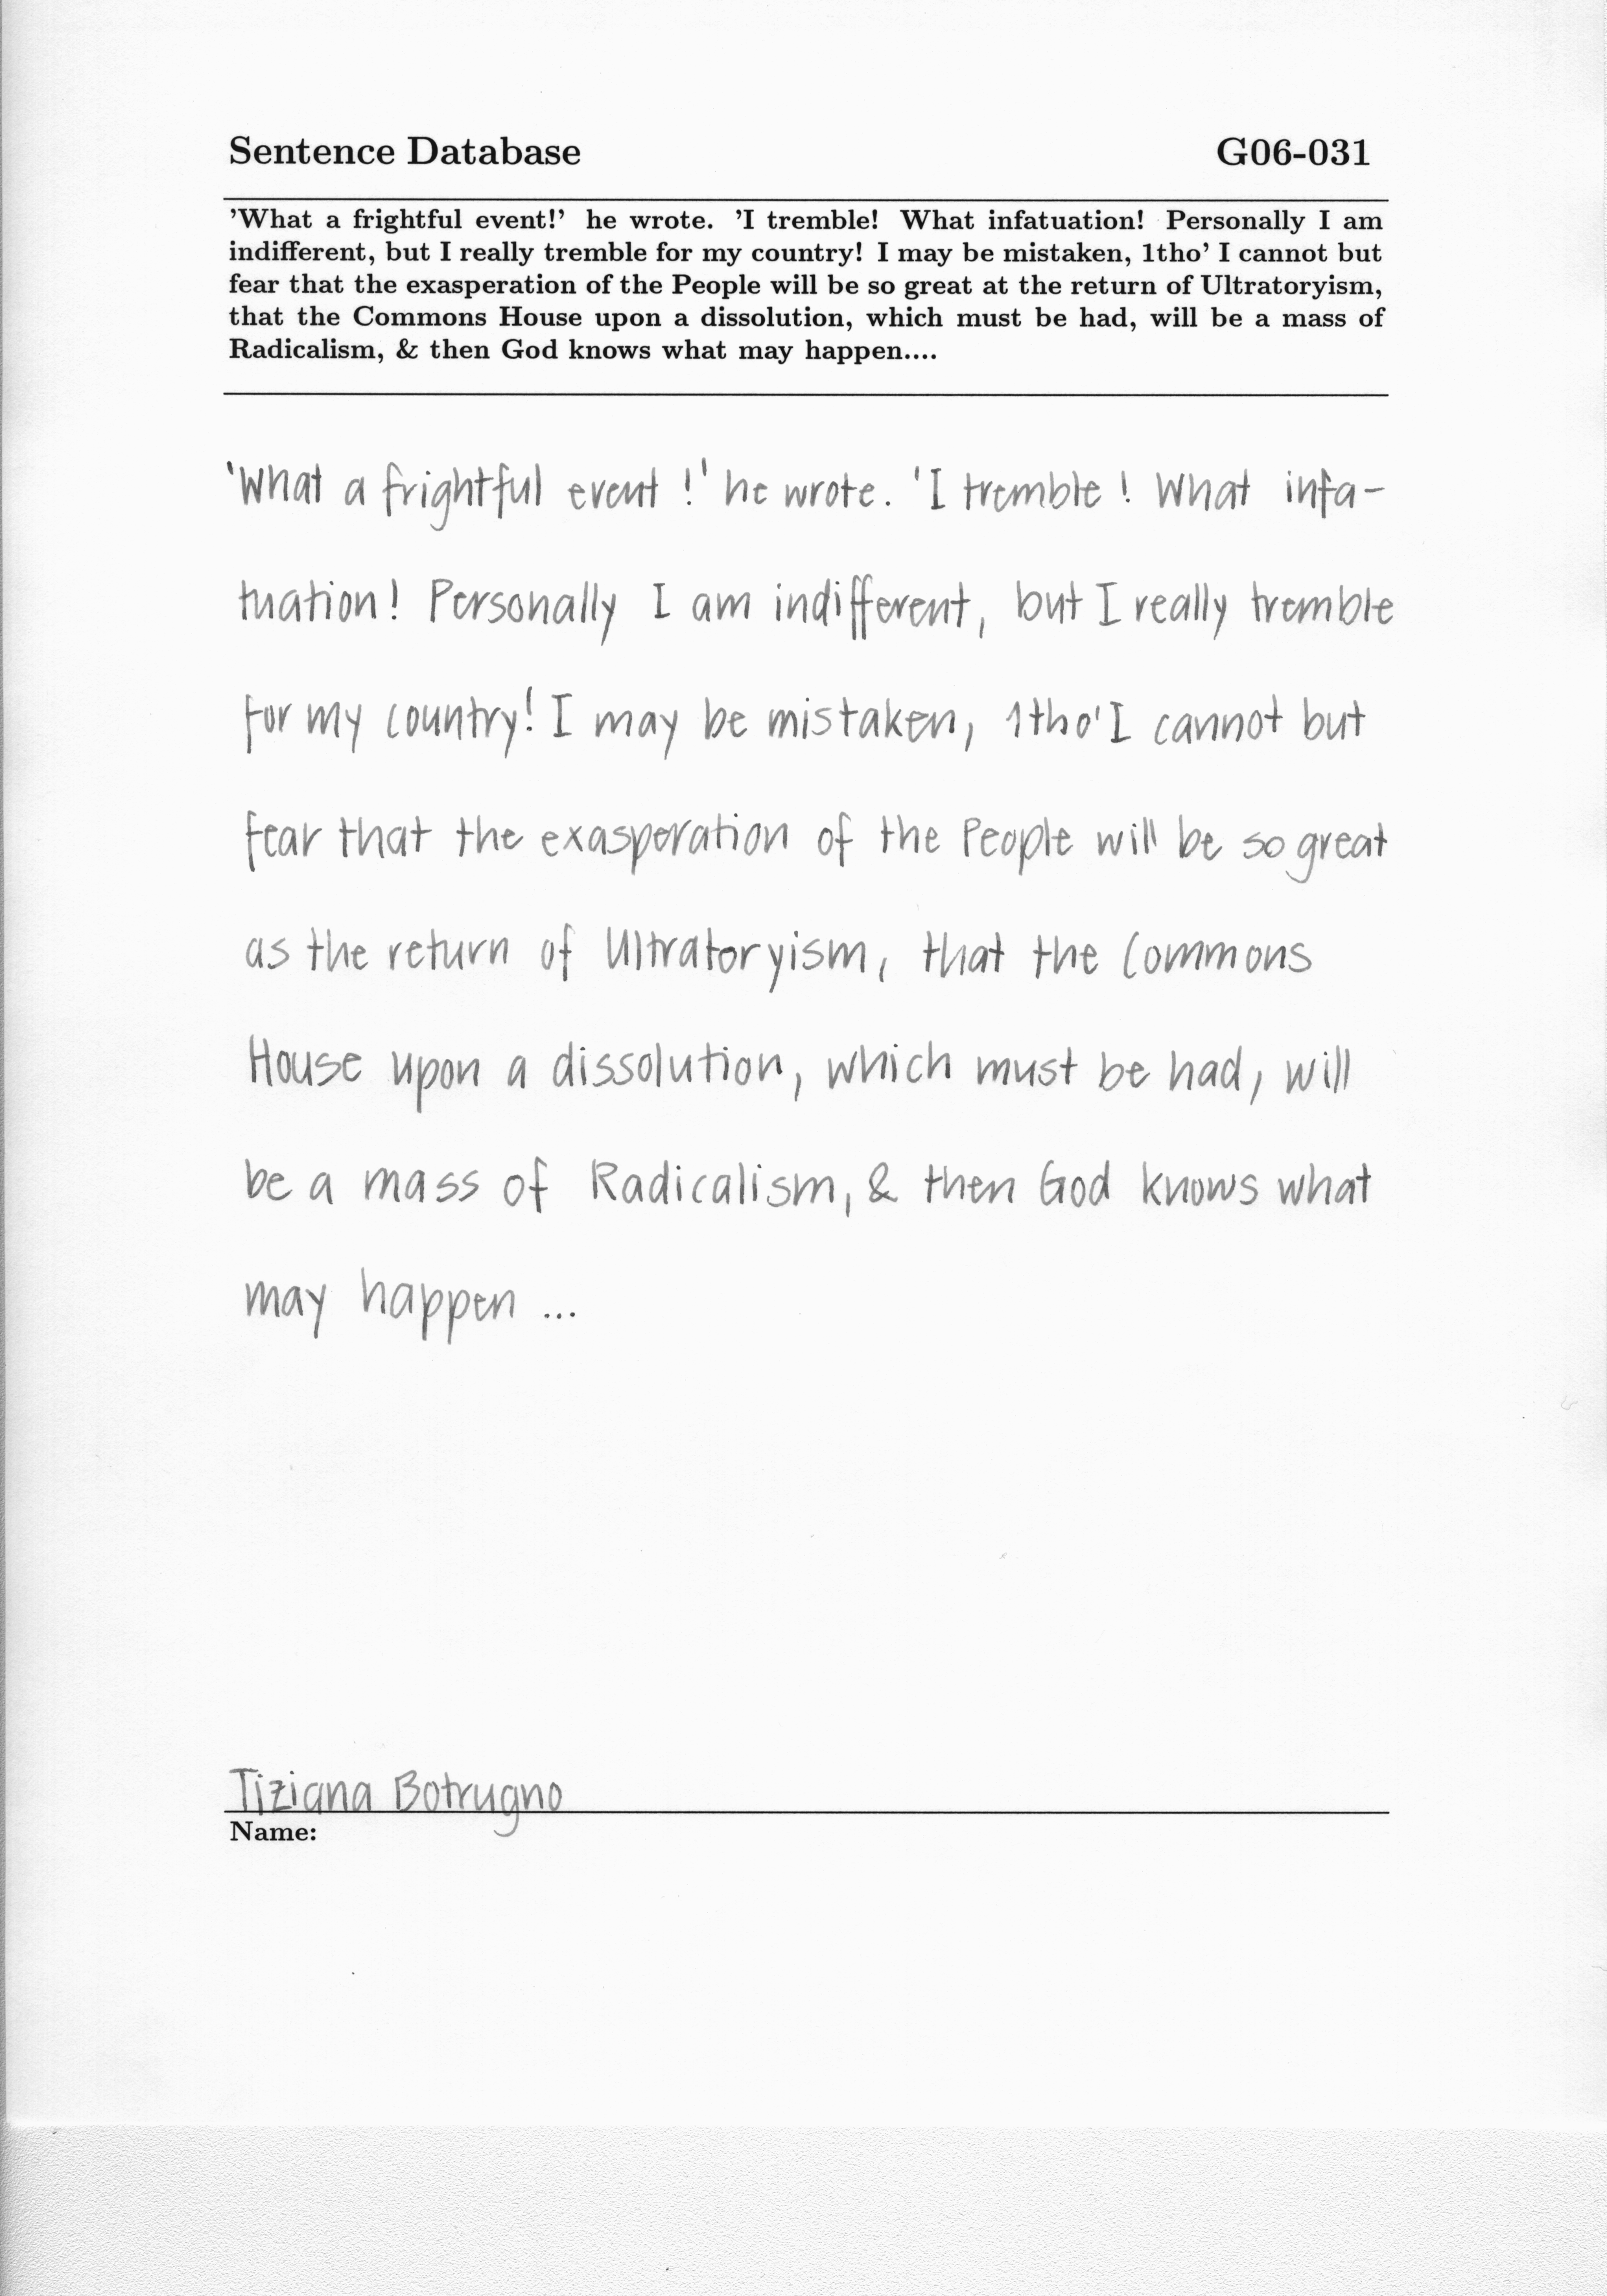 Sentence Database G06-031
’What a frightful event!’ he wrote. ’I tremble! What infatuation! Personally I am
indifferent, but I really tremble for my country! I may be mistaken, 1tho’ I cannot but
fear that the exasperation of the People will be so great at the return of Ultratoryism,
that the Commons House upon a dissolution, which must be had, will be a mass of
Radicalism, & then God knows what may happen....
'What a frightful event !' he wrote. 'I tremble ! What infa-
tuation! Personally I am indifferent, but I really tremble
for my country! I may be mistaken, 1tho' I cannot but
fear that the exasperation of the People will be so great
as the return of Ultratoryism, that the Commons
House upon a dissolution, which must be had, will
be a mass of Radicalism, & then God knows what
may happen ...
Tiziana Botrugno
Name: